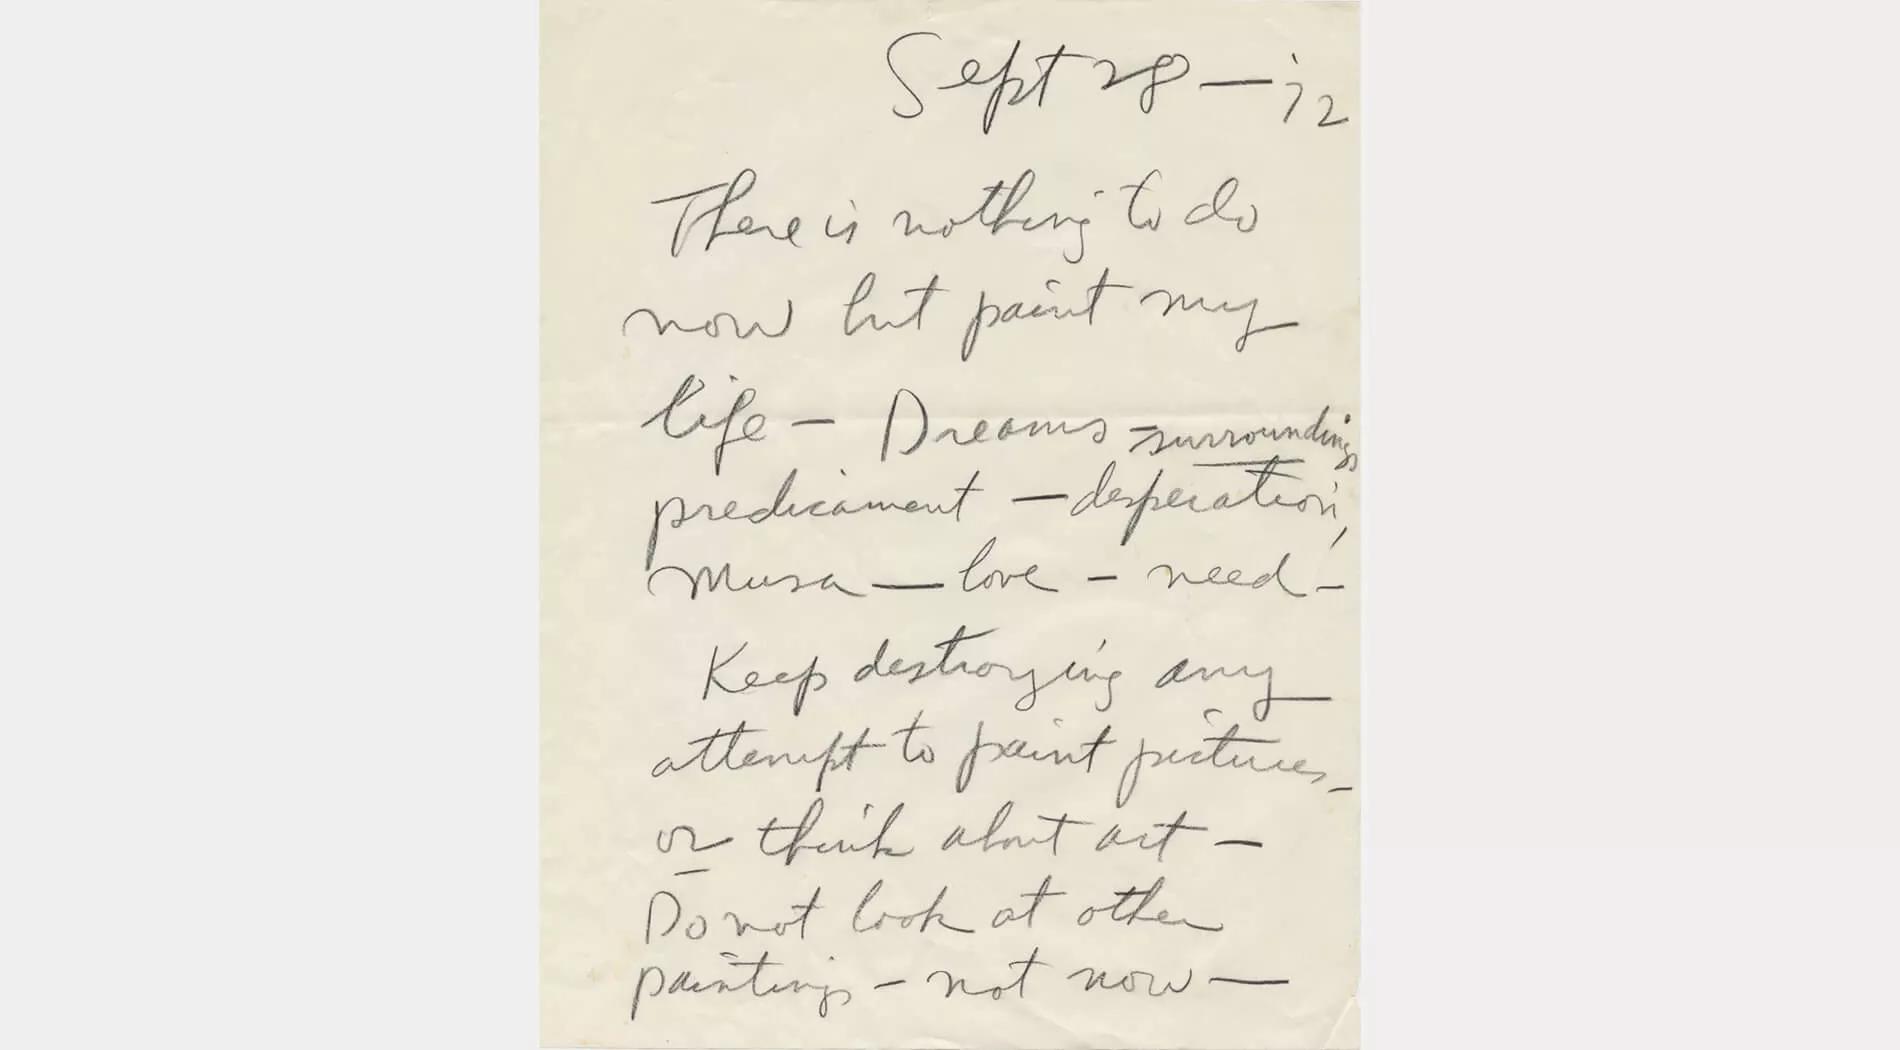 Sept 28 — '72
There is nothing to do
now but paint my
life — Dreams — surroundings
predicament — desperation,
Musa — love — need —
Keep destroying any
attempt to paint pictures —
or think about art —
Do not look at other
paintings — not now —